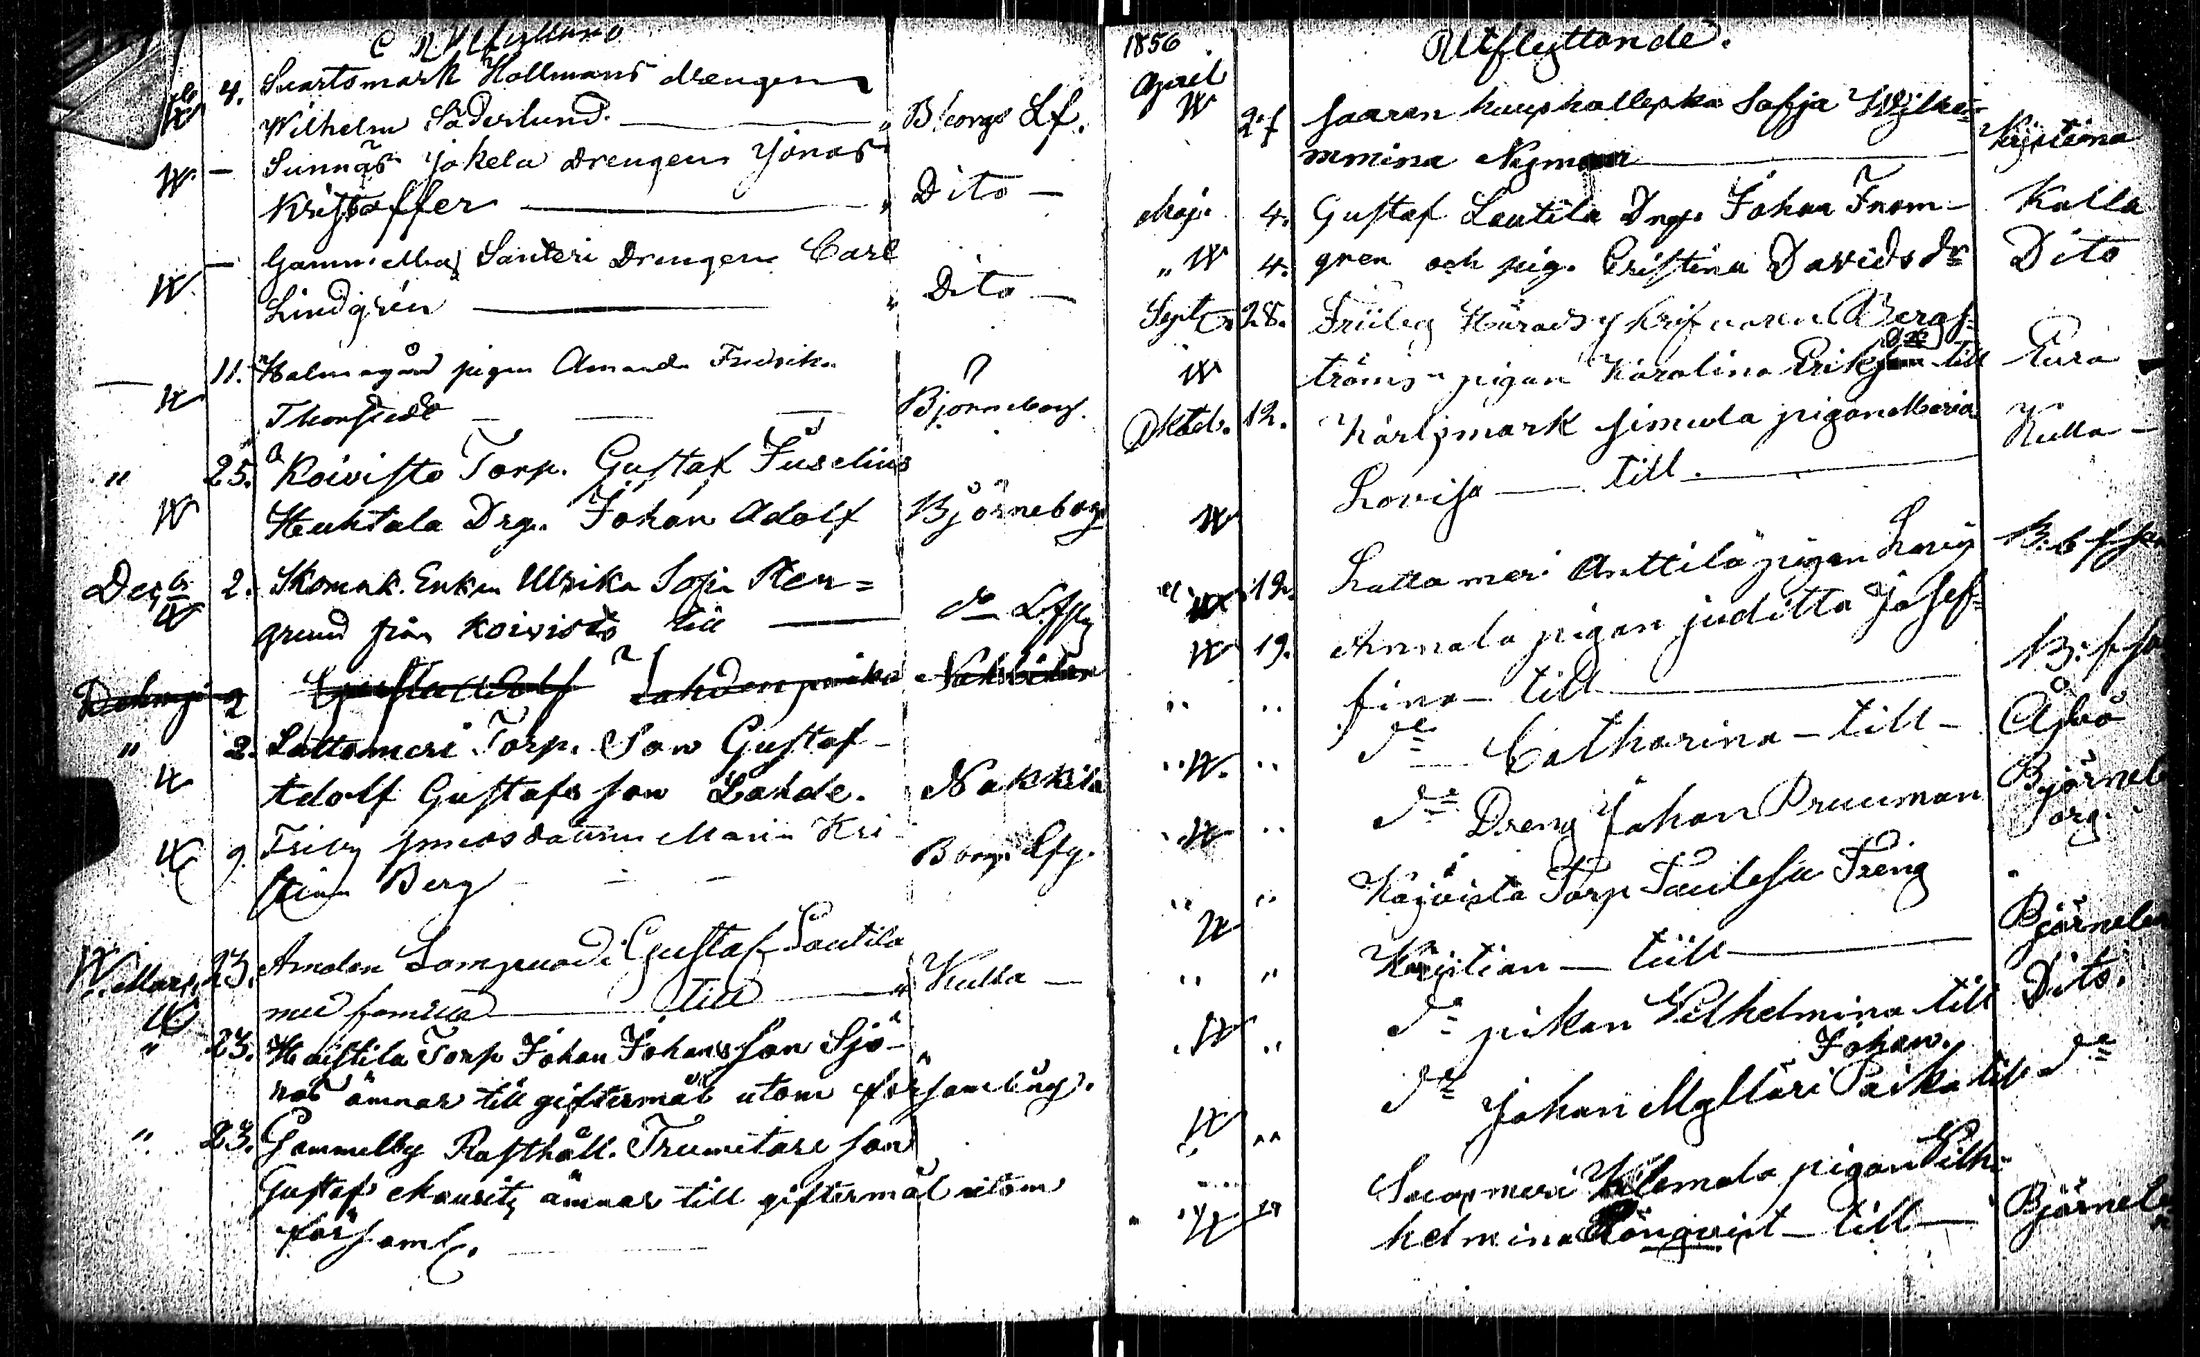 4. Svartsmark Hollmans drengen
Wilhelm Söderlund. — B:borgs Lf.
— Sunnäs Jokela Drengen Jonas
Kristoffer — Dito —
— Gammelby Santeri Drengen Carl
Lindgrén — Dito —
11. Holmegård pigan Amanda Fredrika
Thorstedt — Björneborg.
" 25. Koivisto Torp. Gustaf Fuselius
Huhtala Drg. Johan Adolf Björneborg
Dec 2. Skomak. Enkan Ulrika Sofia Sten=
grund från Koivisto till — Lfsg
2 Gustaf Adolf Lahdenperä
" 2. Lattomeri Torp. Son Gustaf
Adolf Gustafsson Lahde. Nakkila
9. Friby Maria Kri
stina Berg — B borgs Lfg.
Mars 23. Gustaf Lautila
med familia — till — Kulla —
" 23. Haistila Torp Johan Johansson Sjö-
roos ämnar till giftermål utom församling.
" 23. Gammelby Rusthåll. Trumetare son
Gustaf Mauritz ämnar till giftermål utom
församl.
1856 Utflyttande.
April
27 Saaren huushollerska Sofja Wilhe=
mmina Nyman — Kristiina
Maji 4. Gustaf Lautila Drg. Johan From- Kulla
" 4. gren och pig. Cristina Davidsdr Dito
Sept 28. Friiby Häradsskrifvaren Bergs-
tröms pigan Karolina Eriks till Eura
Oktob. 12. Härpmark Simula pigan Maria
Lovisa — till — Kulla —
12. Lattomeri Anttila pigan Lovis
19. Annala pigan Juditta Josef=
fina — till —
do Catharina — till — Åbo
do Dreng Johan Pruuman Björneb
org.
Koivisto Torp Dreng
Kristian — till — Björneb
do pikan Vilhelmina till Dito.
Johan.
do Johan Mylläri Poika till do
Suosmeri Klemola pigan Vilh=
helmina Rönqvist — till — Björneb